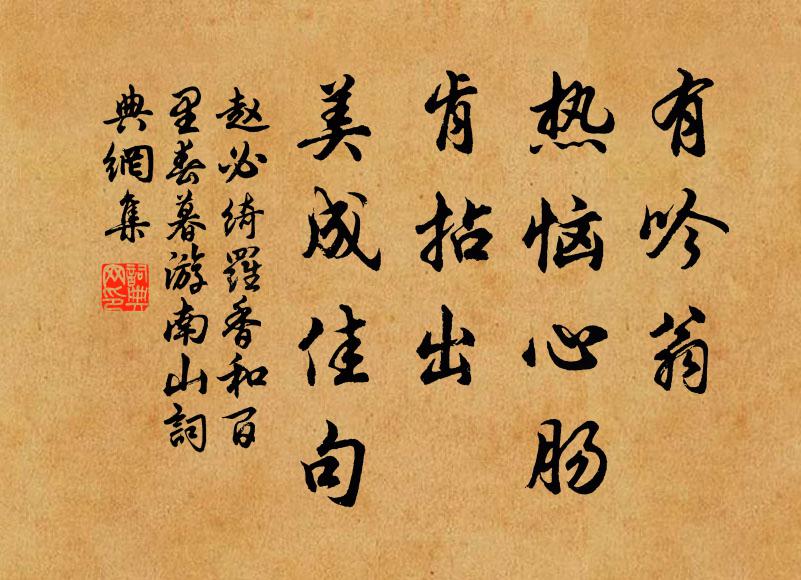 有吟翁
热恼心肠
肯拈出
美成佳句
赵必𤩪绮罗香和百
里春暮游南山詞
典網集
詞典网印